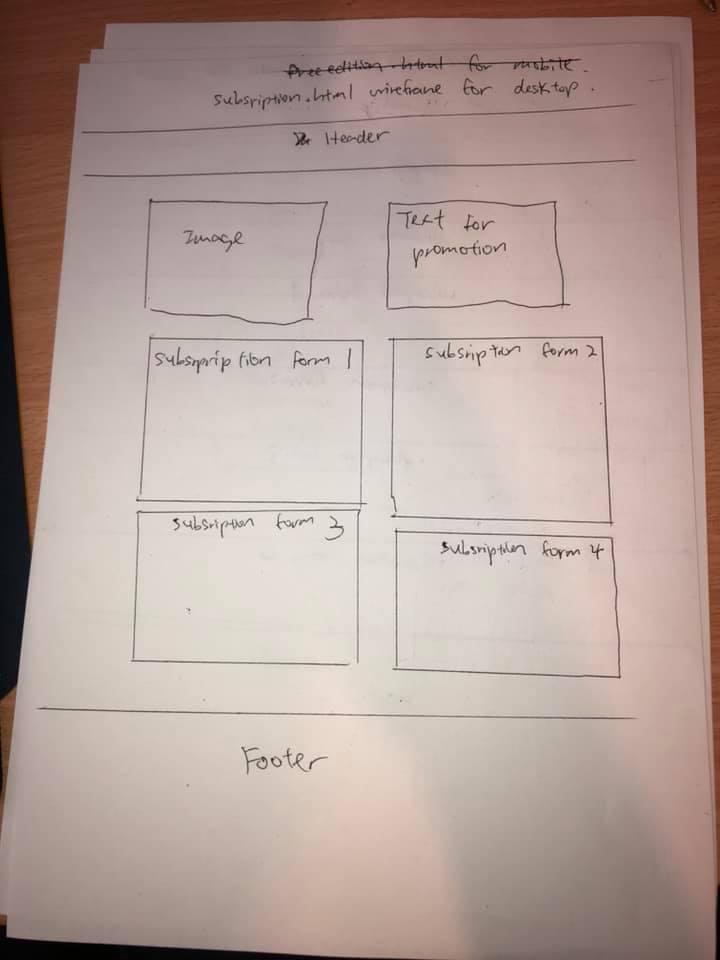 free edition.html for mobile.
subsription.html wireframe for desktop.
Header
Image
Text for
promotion
subsrprip tion form 1
subsription form 2
subsription form 3
subsription form 4
Footer